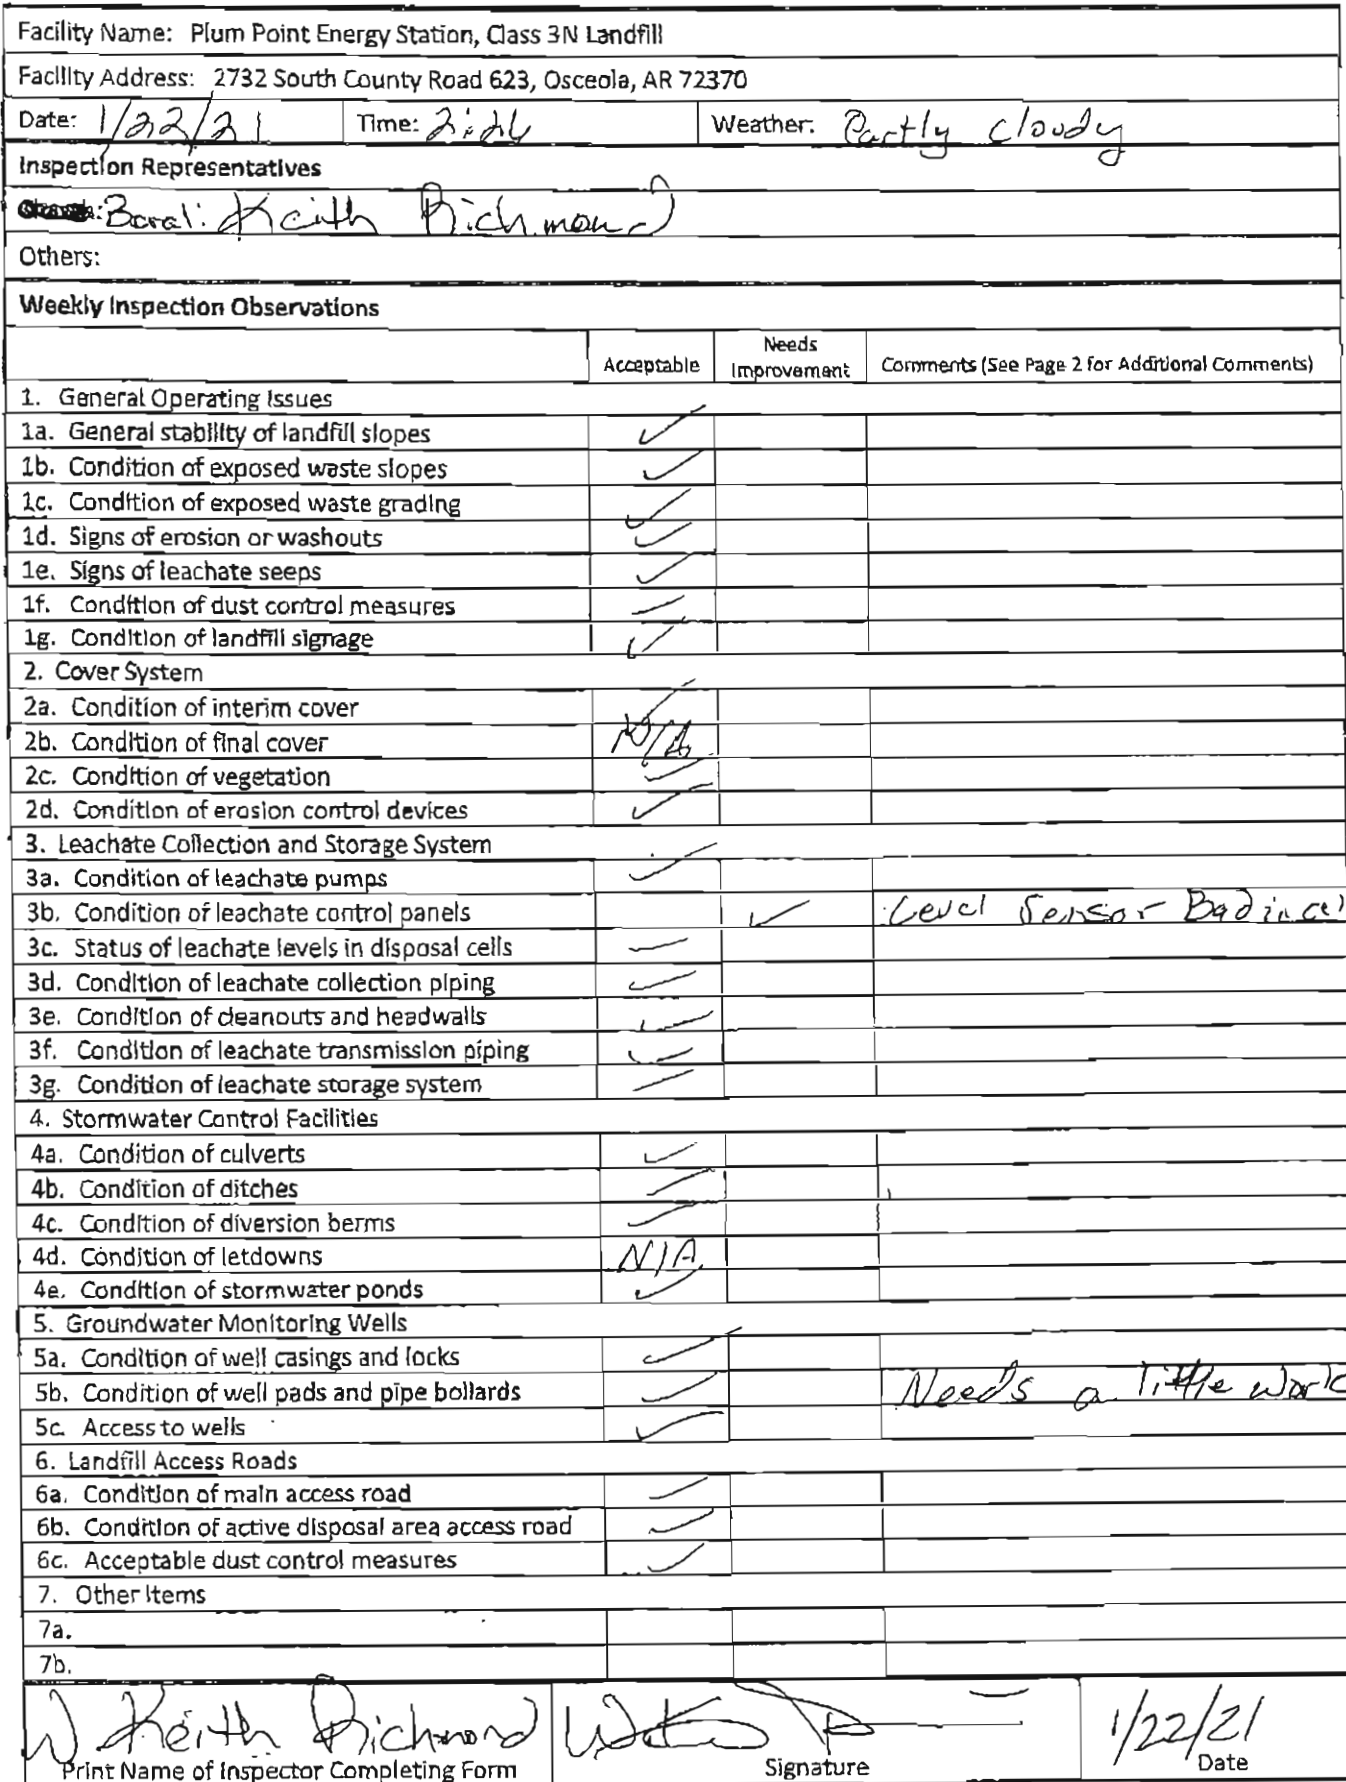 Facility Name: Plum Point Energy Station, Class 3N Landfill
Facility Address: 2732 South County Road 623, Osceola, AR 72370
Date: 1/22/21 Time: 2:26 Weather: Partly cloudy
Inspection Representatives
Boral: Keith Richmond
Others:
Weekly Inspection Observations
Acceptable Needs Improvement Comments (See Page 2 for Additional Comments)
1. General Operating Issues
1a. General stability of landfill slopes ✓
1b. Condition of exposed waste slopes ✓
1c. Condition of exposed waste grading ✓
1d. Signs of erosion or washouts ✓
1e. Signs of leachate seeps ✓
1f. Condition of dust control measures ✓
1g. Condition of landfill signage ✓
2. Cover System
2a. Condition of interim cover ✓
2b. Condition of final cover N/A
2c. Condition of vegetation ✓
2d. Condition of erosion control devices ✓
3. Leachate Collection and Storage System
3a. Condition of leachate pumps ✓
3b. Condition of leachate control panels ✓ Level Sensor Bad in
3c. Status of leachate levels in disposal cells ✓
3d. Condition of leachate collection piping ✓
3e. Condition of cleanouts and headwalls ✓
3f. Condition of leachate transmission piping ✓
3g. Condition of leachate storage system ✓
4. Stormwater Control Facilities
4a. Condition of culverts ✓
4b. Condition of ditches ✓
4c. Condition of diversion berms ✓
4d. Condition of letdowns N/A
4e. Condition of stormwater ponds ✓
5. Groundwater Monitoring Wells
5a. Condition of well casings and locks ✓
5b. Condition of well pads and pipe bollards ✓ Needs a little work
5c. Access to wells ✓
6. Landfill Access Roads
6a. Condition of main access road ✓
6b. Condition of active disposal area access road ✓
6c. Acceptable dust control measures ✓
7. Other Items
7a.
7b.
W Keith Richmond 1/22/21
Print Name of Inspector Completing Form Signature Date